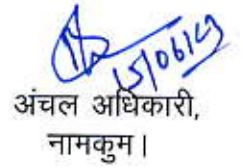 15/06/19
अंचल अधिकारी,
नामकुम।